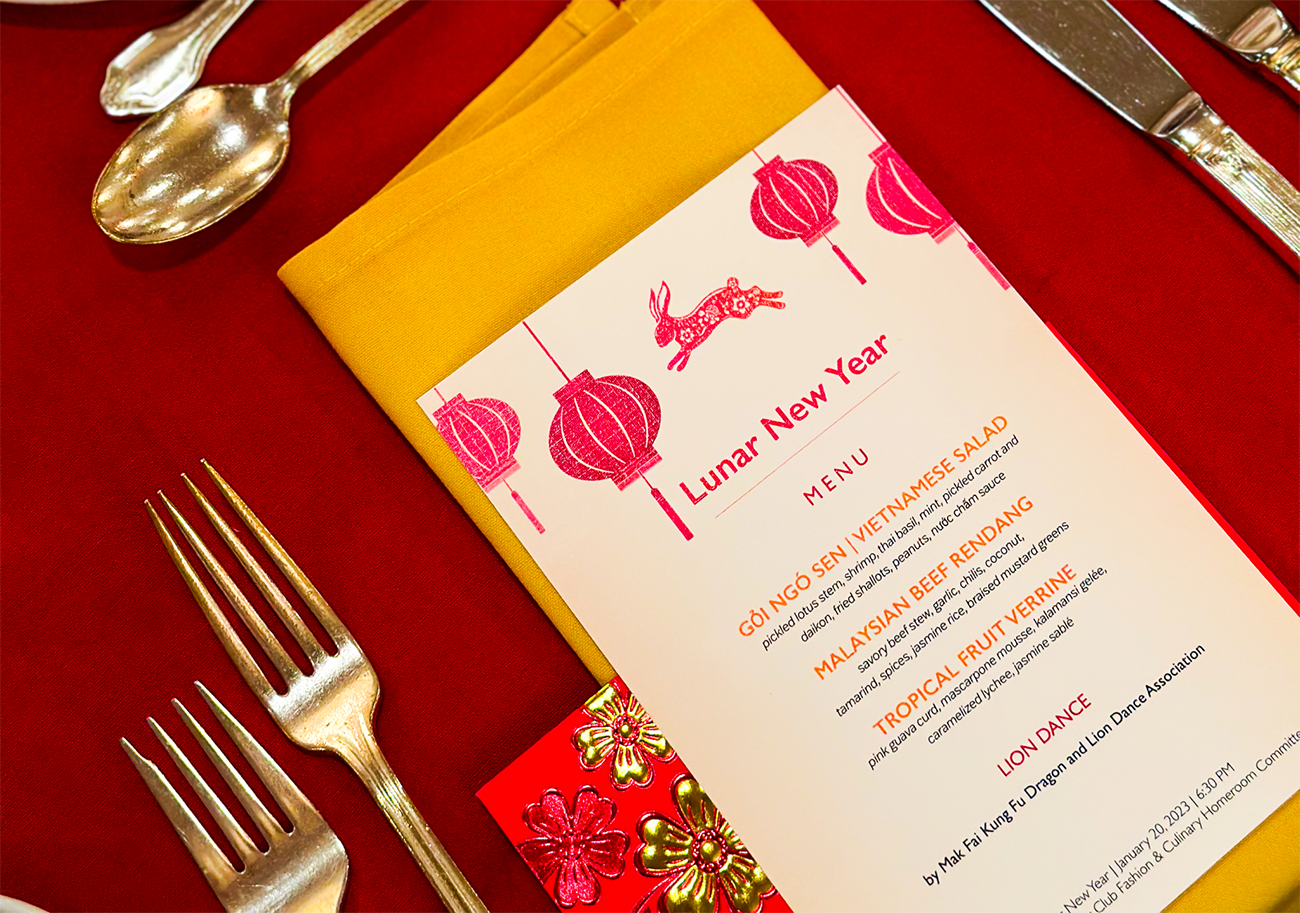 Lunar New Year
MENU
GỎI NGÓ SEN | VIETNAMESE SALAD
pickled lotus stem, shrimp, thai basil, mint, pickled carrot and
daikon, fried shallots, peanuts, nước chấm sauce
MALAYSIAN BEEF RENDANG
savory beef stew, garlic, chilis, coconut,
tamarind, spices, jasmine rice, braised mustard greens
TROPICAL FRUIT VERRINE
pink guava curd, mascarpone mousse, kalamansi gelée,
caramelized lychee, jasmine sablé
LION DANCE
by Mak Fai Kung Fu Dragon and Lion Dance Association
New Year | January 20, 2023 | 6:30 PM
Club Fashion & Culinary Homeroom Committe